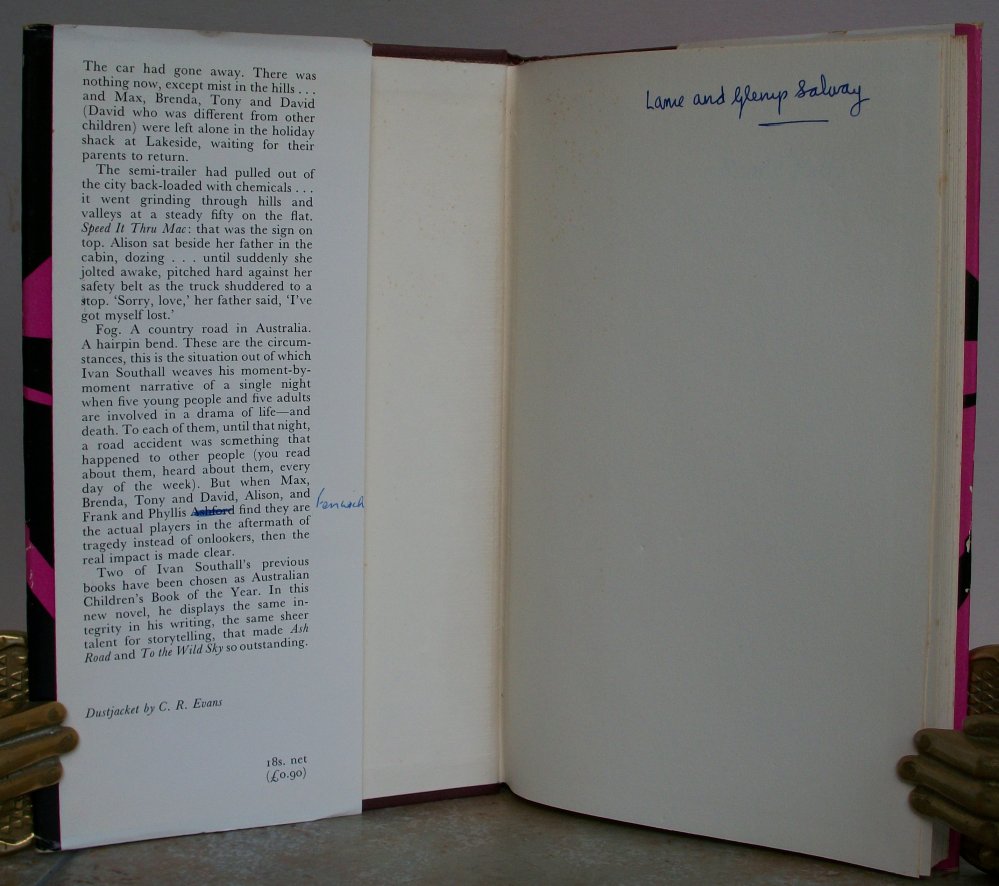 The car had gone away. There was
nothing now, except mist in the hills . . .
and Max, Brenda, Tony and David
(David who was different from other
children) were left alone in the holiday
shack at Lakeside, waiting for their
parents to return.
The semi-trailer had pulled out of
the city back-loaded with chemicals . . .
it went grinding through hills and
valleys at a steady fifty on the flat.
Speed It Thru Mac: that was the sign on
top. Alison sat beside her father in the
cabin, dozing . . . until suddenly she
jolted awake, pitched hard against her
safety belt as the truck shuddered to a
stop. ‘Sorry, love,’ her father said, ‘I’ve
got myself lost.’
Fog. A country road in Australia.
A hairpin bend. These are the circum-
stances, this is the situation out of which
Ivan Southall weaves his moment-by-
moment narrative of a single night
when five young people and five adults
are involved in a drama of life—and
death. To each of them, until that night,
a road accident was something that
happened to other people (you read
about them, heard about them, every
day of the week). But when Max,
Brenda, Tony and David, Alison, and
Frank and Phyllis Ashford find they are
the actual players in the aftermath of
tragedy instead of onlookers, then the
real impact is made clear.
Two of Ivan Southall’s previous
books have been chosen as Australian
Children’s Book of the Year. In this
new novel, he displays the same in-
tegrity in his writing, the same sheer
talent for storytelling, that made Ash
Road and To the Wild Sky so outstanding.
Dustjacket by C. R. Evans
18s. net
(£0.90)
and Salway